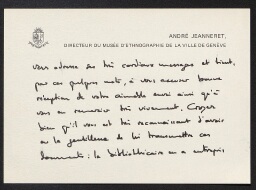 ANDRÉ JEANNERET,
DIRECTEUR DU MUSÉE D'ETHNOGRAPHIE DE LA VILLE DE GENÈVE
vous adresse ses très cordiaux messages et tient,
par ces quelques mots, à vous accuser bonne
réception de votre aimable envoi ainsi qu'à
vous en remercier très vivement. Croyez
bien qu'il vous est très reconnaissant d'avoir
eu la gentillesse de lui transmettre ces
documents : la bibliothécaire en a entrepris